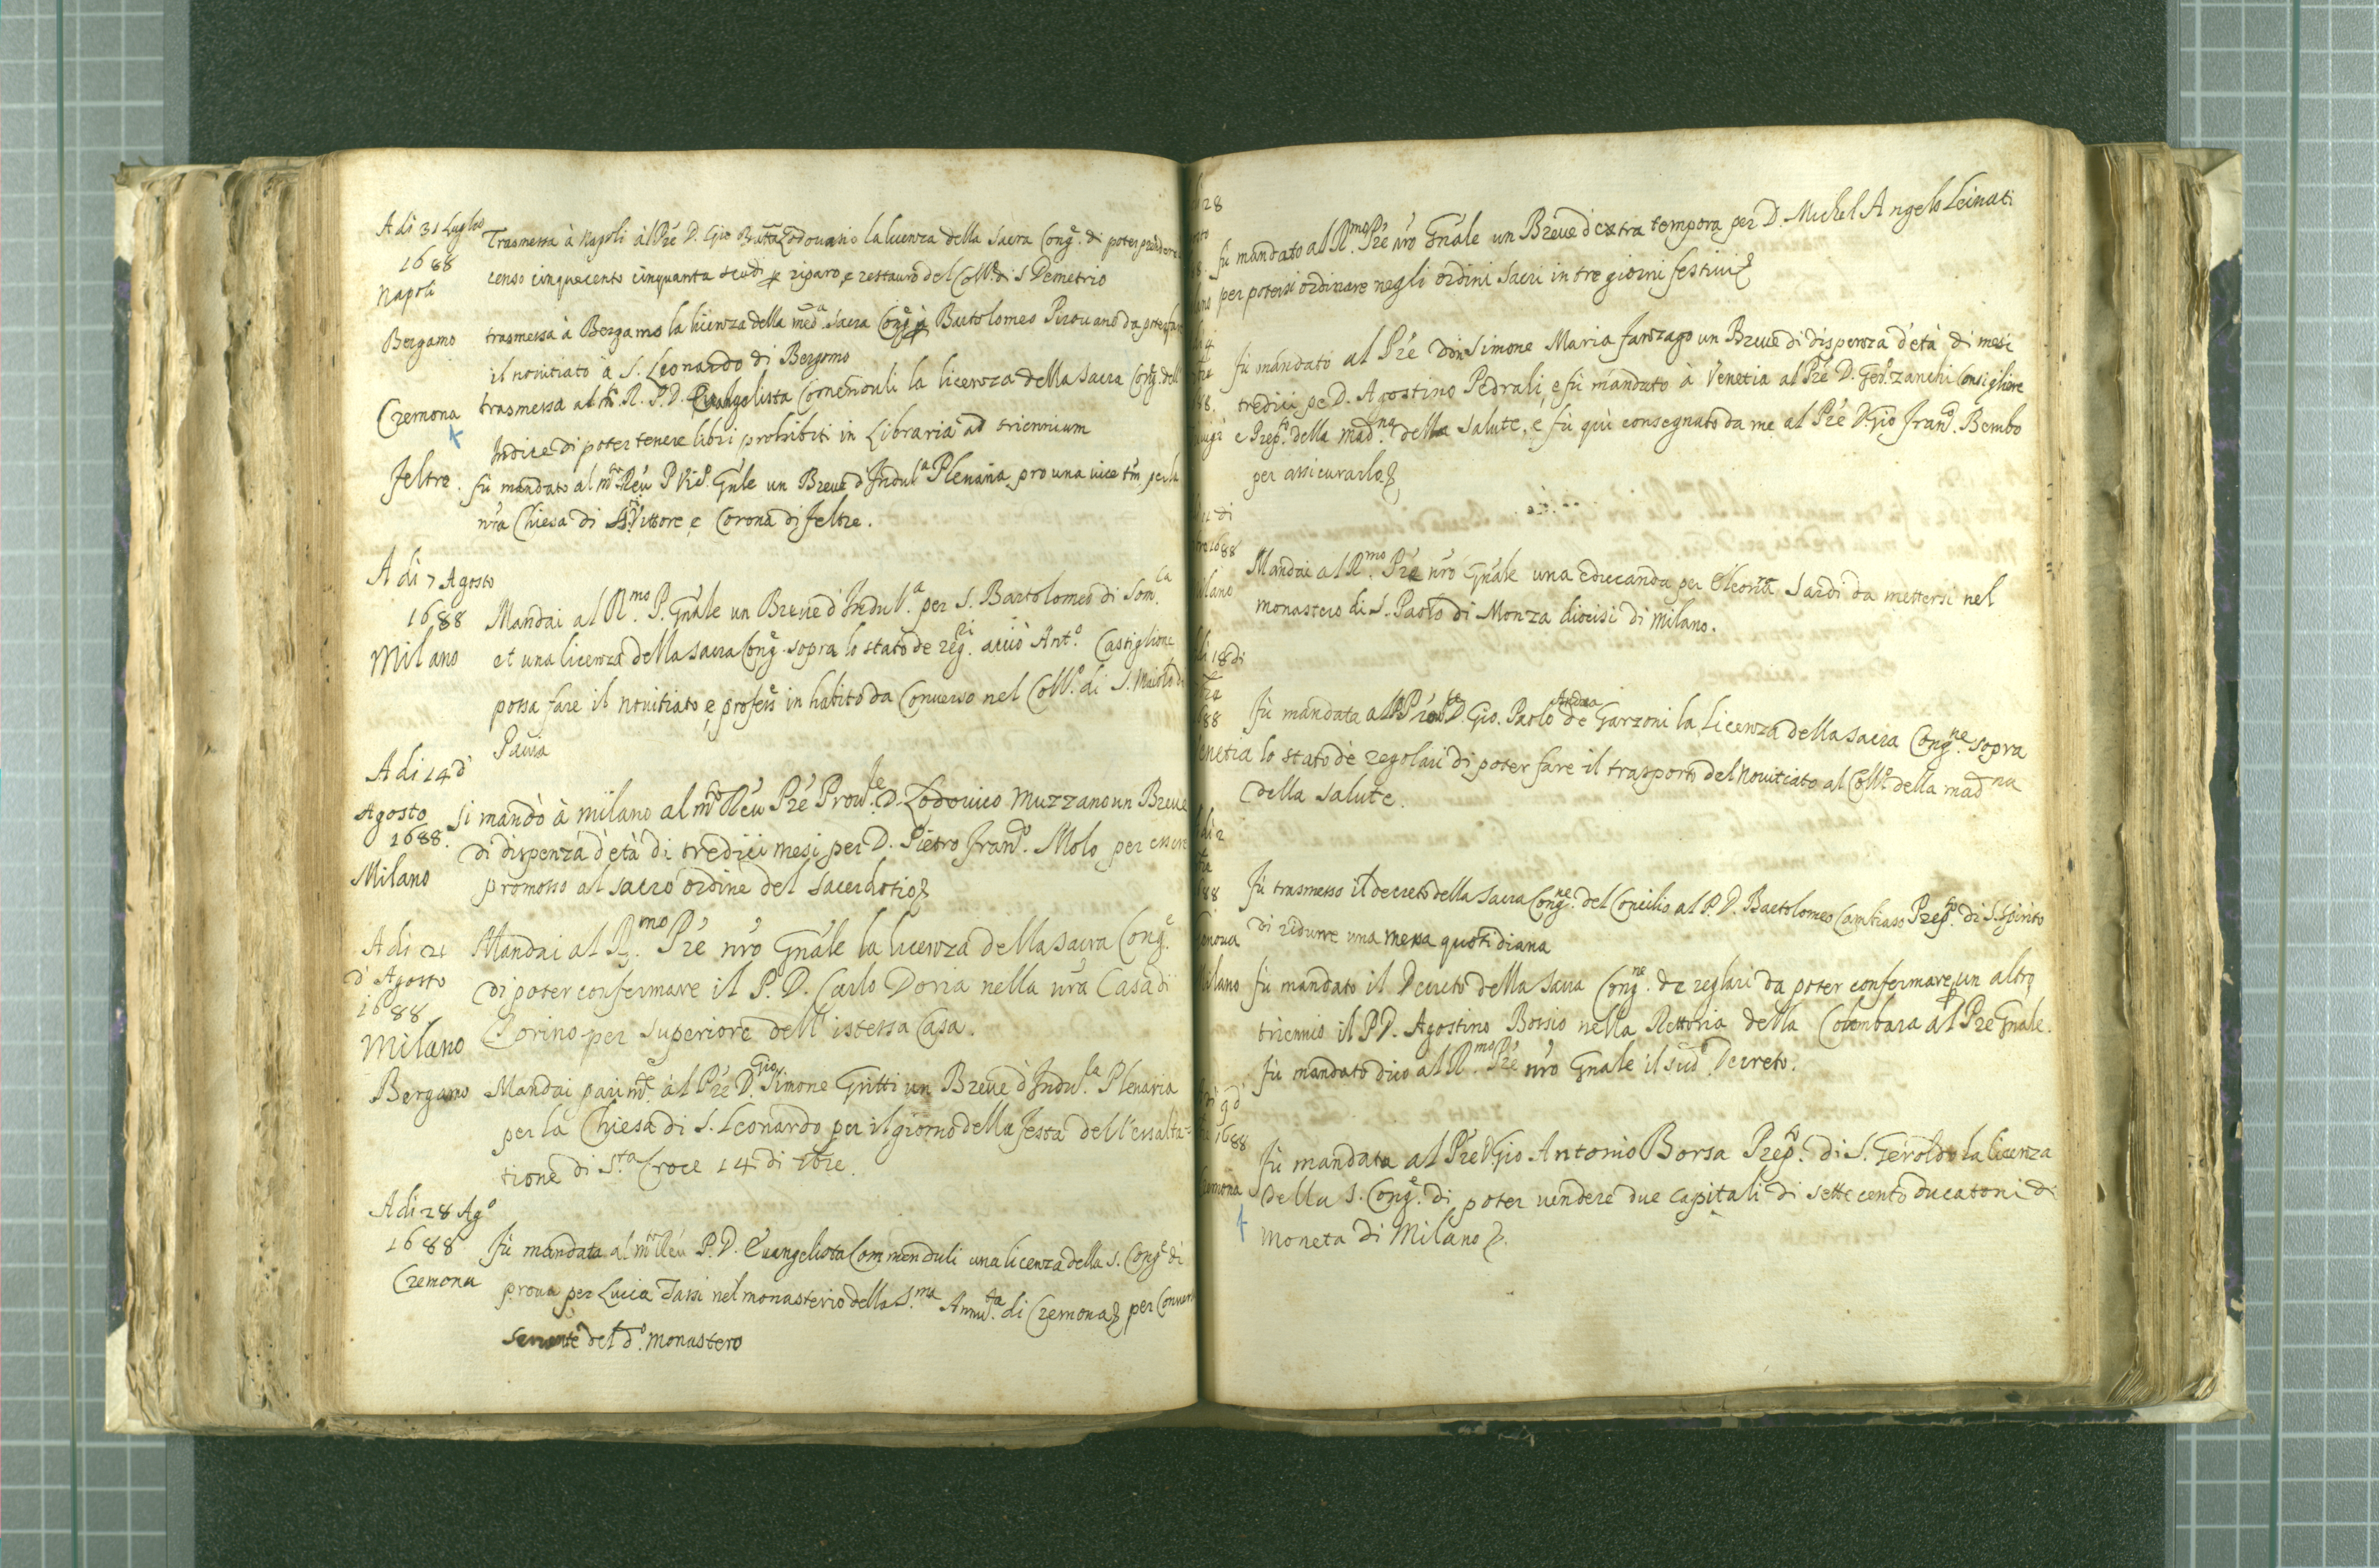 A di 31 Luglio
1688
Napoli
Trasmessa à Napoli al Pré D. Gio Batta Lodovasio la licenza della Sacra Conge. di poter prendere
censo cinquecento cinquanta scudi p riparo, e restauro del Collo. di S Demetrio
Bergamo
trasmessa à Bergamo la licenza della meda. Sacra Conge à Bartolomeo Pirovano da poter far
il novitiato à S. Leonardo di Bergomo
Cremona
trasmessa al M. R. P. D. Evangelista Comenduli la licenza della Sacra Conge. dell
Indice di poter tenere libri prohibiti in Libraria ad triennium
Feltre.
fù mandato al mto Reu P Vico. Gnle un Breue d'Indula Plenaria pro una uice tm per la
nra Chiesa di SS. Vittore, e Corona di Feltre.
A di 7 Agosto
1688
Milano
Mandai al Rmo. P. Gnale un Breue d'Indula. per S. Bartolomeo di Somca.
et una licenza della sacra Conge. sopra lo stato de regri. acciò Anto. Castiglione
possa fare il nouitiato e, profese in habito da Conuerso nel Collo. di S. Maiolo di
Pauia
A di 14 d'
Agosto
1688.
Milano
Si mandò à milano al mto Reu Pré Proule. D. Lodouico Muzzano un Breue
di dispenza d'età di tredici mesi per D. Pietro Frano. Molo per essere
promosso al sacro ordine del Sacerdotio
A di 21
d'Agosto
1688
Milano
Mandai al Rmo. Pré nro Gnale la licenza della sacra Conge.
di poter confermare il P. D. Carlo Doria nella nra Casa di
Torino per Superiore dell'istessa Casa.
Bergamo
Mandai parimte. al Pré D. Gio Simone Gritti un Breue d'Indula. Plenaria
per la Chiesa di S. Leonardo per il giorno della festa dell'essalta=
tione di Sta. Croce 14 di 7bre.
A di 28 Ago
1688
Cremona
Fù mandata al mto Reu P. D. Euangelista Commenduli una licenza della S. Conge di
proua per Lucia Tassi nel monasterio della Sma Annuta. di Cremona per Conuersa
seruente del do. monastero
28
fù mandato al Rmo. Pré nro Gnale un Breue d'extra tempora per D. Michel Angelo Leinati
per potersi ordinare negli ordini Sacri in tre giorni festiui
fù mandato al Pré Don Simone Maria Fanzago un Breue di dispenza d'età di mesi
tredici pe D. Agostino Pedrali, e fù mandato à Venetia al Pré D. Gero. Zanchi Consigliere
e Prepo. della Madna. della Salute, e fù quì consegnato da me al Pré D Gio Frano. Bembo
per assicurarlo
di
1688
Mandai al Rmo. Pré nro Gnale una educanda per Eleonra Sardi da mettersi nel
monastero di S. Paolo di Monza diocisi di milano.
18 di
88
enetia
Fù mandata al Pré D. Gio. Paolo Andrea de Garzoni la Licenza della Sacra Congne. sopra
lo stato de regolari di poter fare il trasporto del Nouitiato al Collo. della madna
della Salute.
88
enoua
Fù trasmesso il decreto della Sacra Congne. del Concilio al P. D. Bartolomeo Cambiaso Prepto. di S. Spirito
di ridurre una messa quotidiana
ilano
fù mandato il Decreto della Sacra Congne. de reglari da poter confermare, p un altro
triennio il P D. Agostino Bossio nella Rettoria della Colombara al Pre Gnale.
fù mandato dico al Rmo Pré nro Gnale il sudo. Decreto.
9 d'
1688
remona
Fù mandata al Pré D Gio Antonio Borsa Prepto. di S. Geroldo la licenza
della S. Conge. di poter uendere due capitali di sette cento ducatoni di
moneta di Milano.